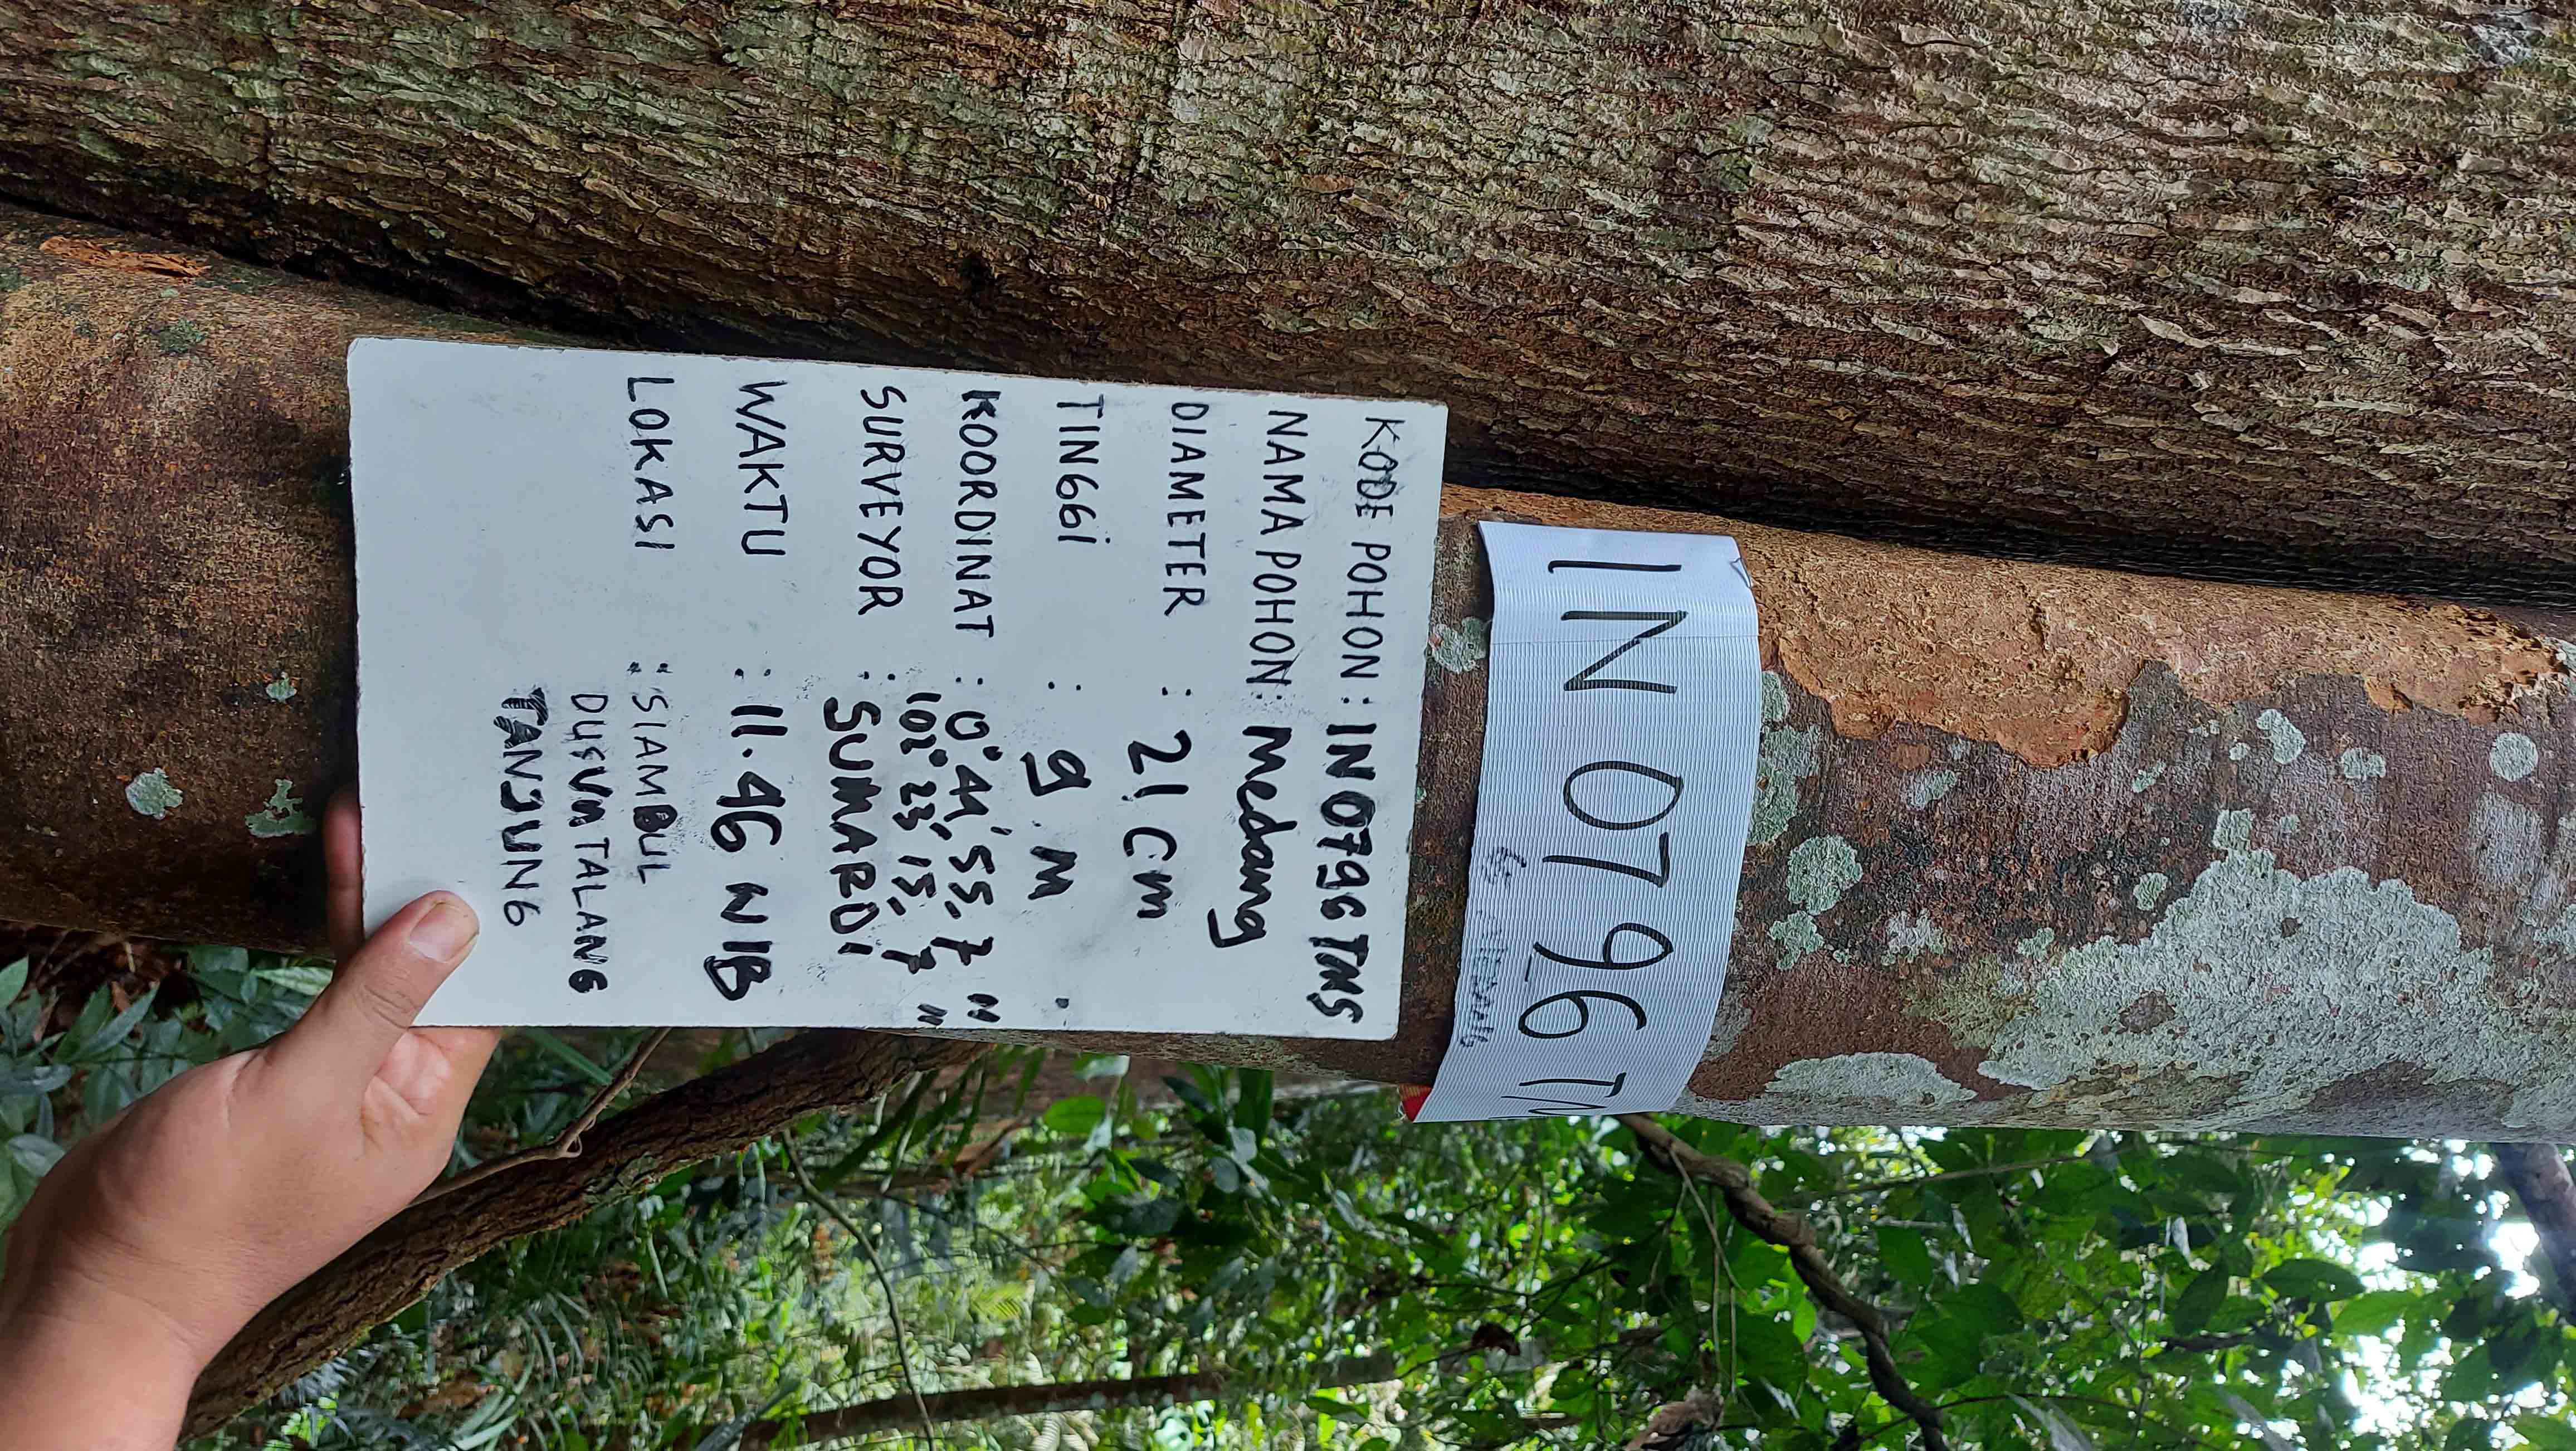 IN 0796 TM
65 MEDANG
KODE POHON : IN 0796 TMS
NAMA POHON : Medang
DIAMETER : 21 cm
TINGGi : 9 M
KOORDINAT : 0° 44' 55, 7 "
102° 23' 15, 7 "
SURVEYOR : SUMARDi
WAKTU : 11.46 WIB
LOKASI : SIAMBUL
DUSUN TALANG
TANJUNG